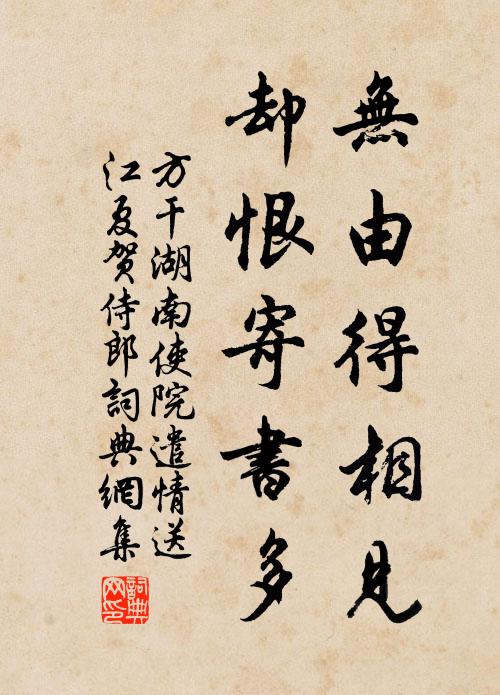 無由得相見
却恨寄書多
方干湖南使院遣情送
江夏賀侍郎詞典網集
詞典
网印